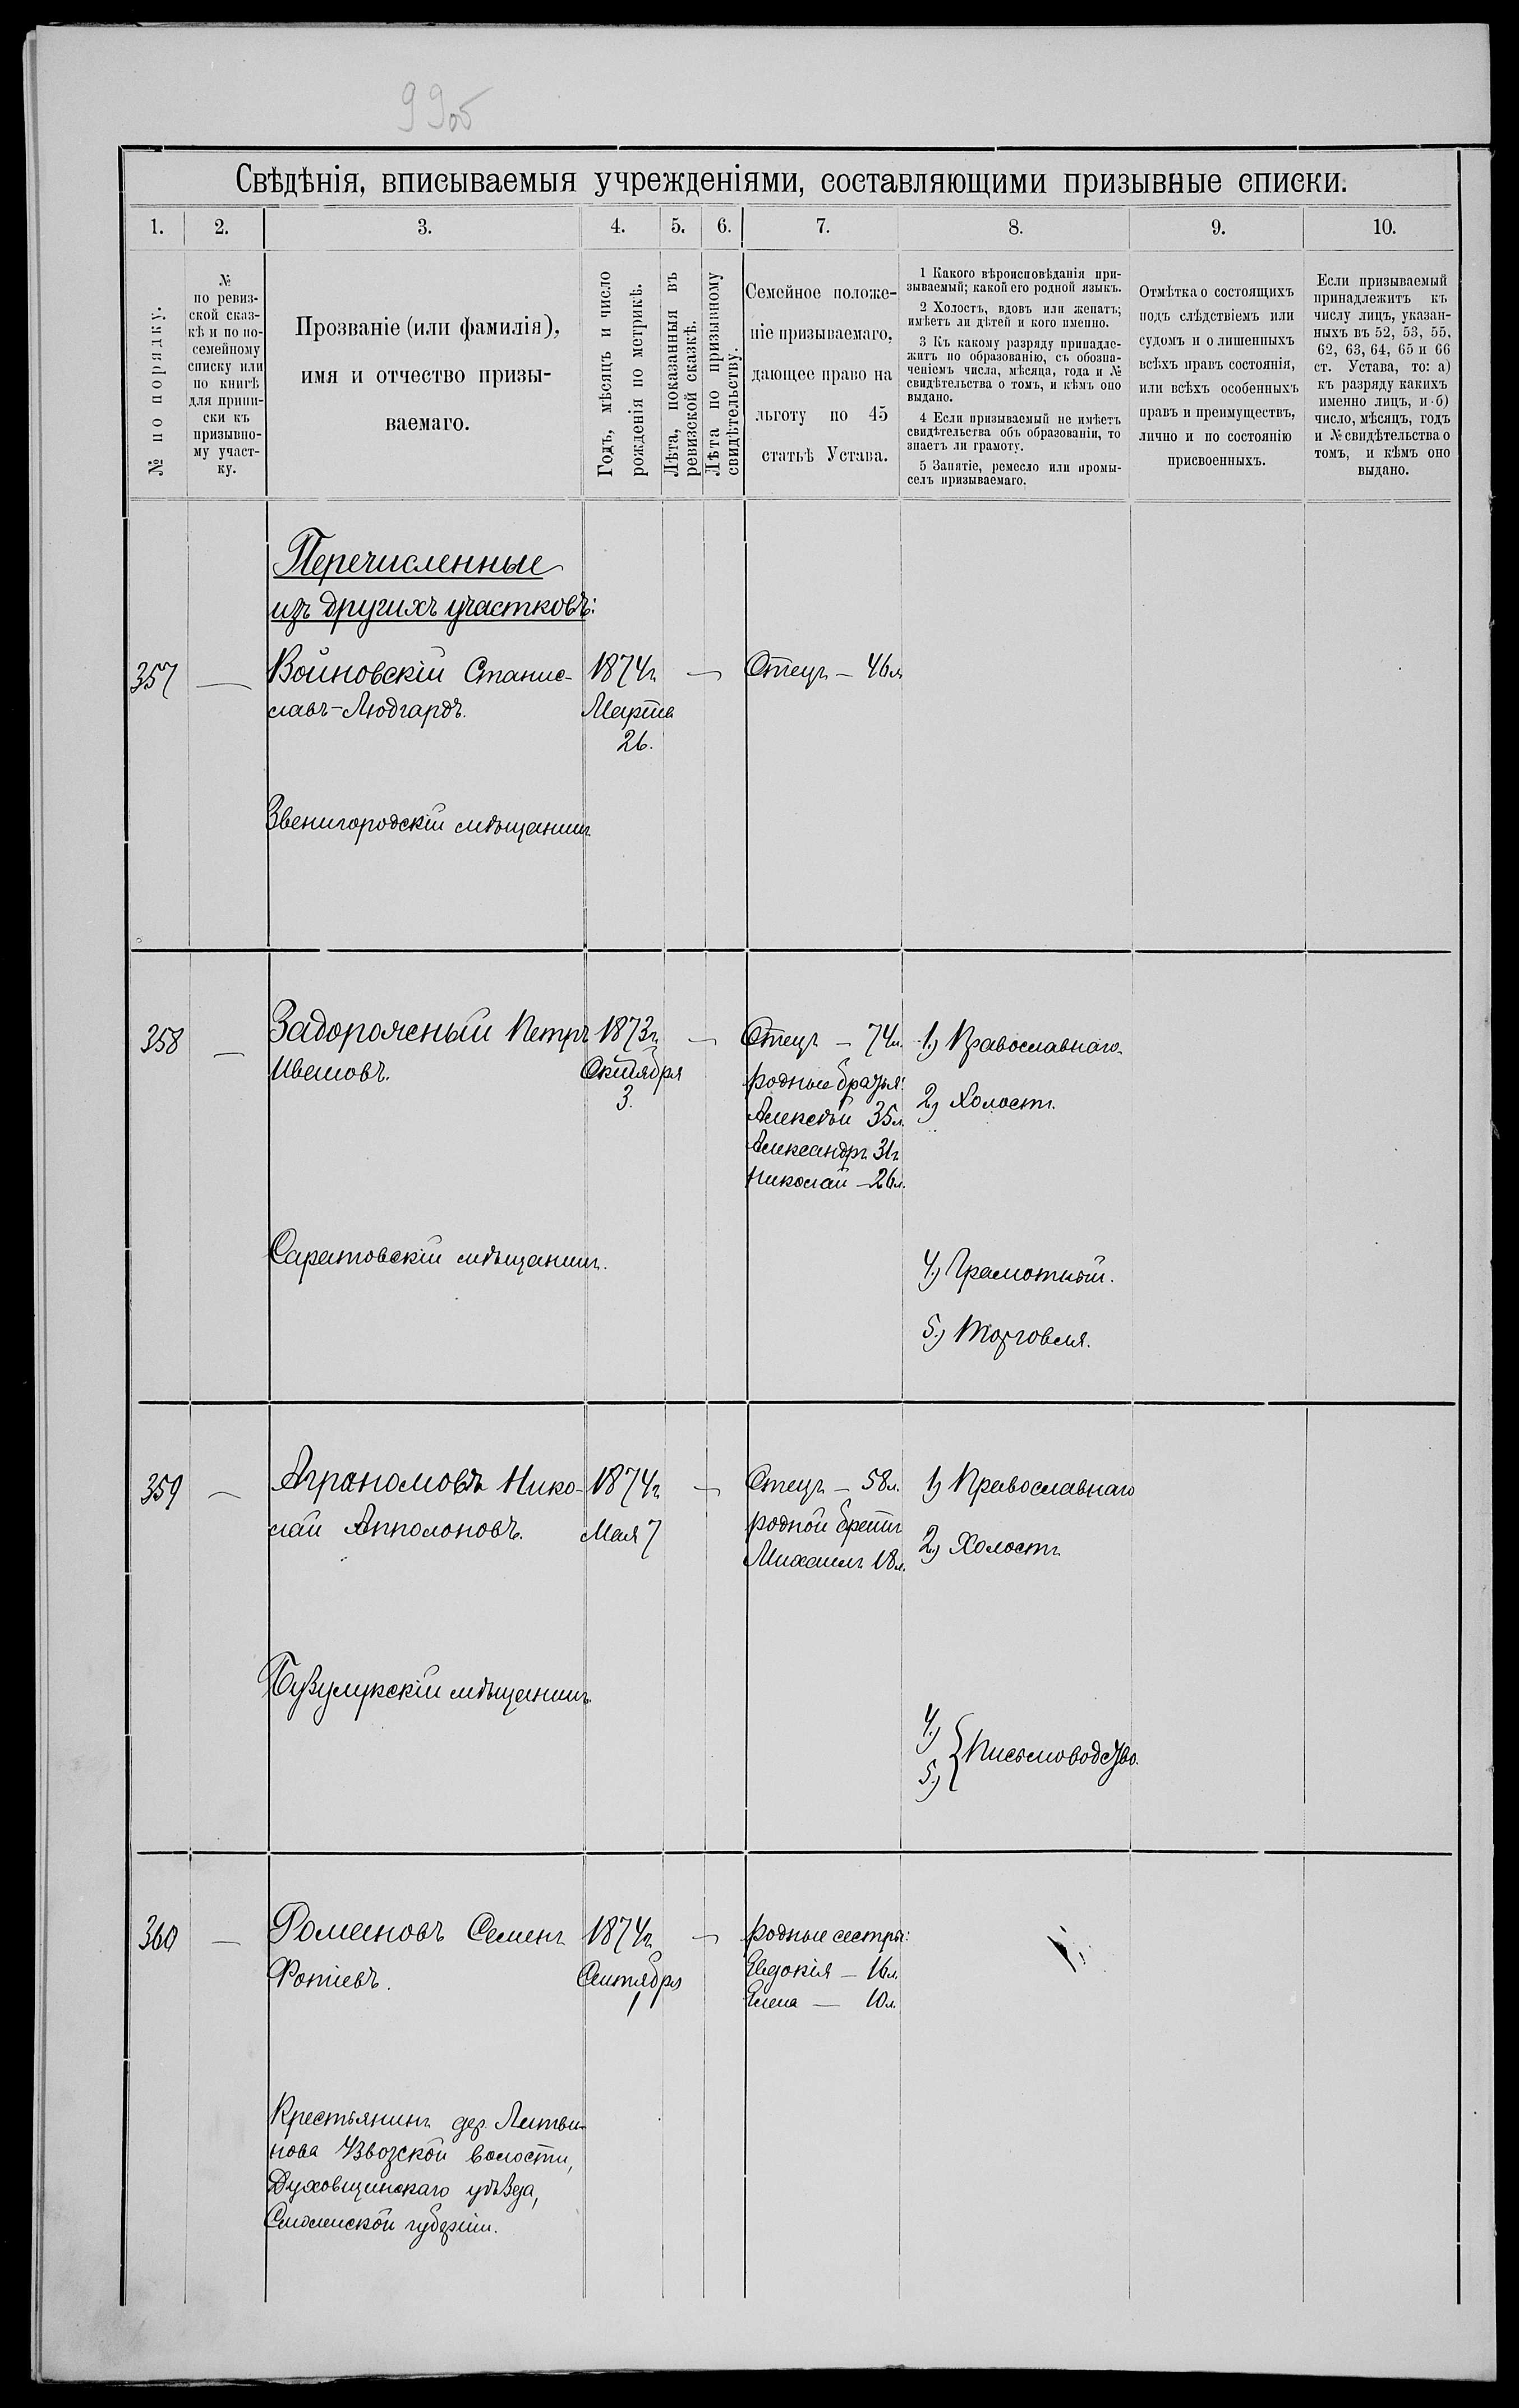 99об
Свѣдѣнія, вписываемыя учрежденіями, составляющими призывные списки.
1. 2. 3. 4. 5. 6. 7. 8. 9. 10.
№ по порядку.
№
по ревиз-
ской сказ-
кѣ и по по-
семейному
списку или
по книгѣ
для припи-
ски къ
призывно-
му участ-
ку.
Прозваніе (или фамилія),
имя и отчество призы-
ваемаго.
Годъ, мѣсяцъ и число
рожденія по метрикѣ.
Лѣта, показанныя въ
ревизской сказкѣ.
Лѣта по призывному
свидѣтельству.
Семейное положе-
ніе призываемаго,
дающее право на
льготу по 45
статьѣ Устава.
1 Какого вѣроисповѣданія при-
зываемый; какой его родной языкъ.
2 Холостъ, вдовъ или женатъ;
имѣетъ ли дѣтей и кого именно.
3 Къ какому разряду принадле-
житъ по образованію, съ обозна-
ченіемъ числа, мѣсяца, года и №
свидѣтельства о томъ, и кѣмъ оно
выдано.
4 Если призываемый не имѣетъ
свидѣтельства объ образованіи, то
знаетъ ли грамоту.
5 Занятіе, ремесло или промы-
селъ призываемаго.
Отмѣтка о состоящихъ
подъ слѣдствіемъ или
судомъ и о лишенныхъ
всѣхъ правъ состоянія,
или всѣхъ особенныхъ
правъ и преимуществъ,
лично и по состоянію
присвоенныхъ.
Если призываемый
принадлежитъ къ
числу лицъ, указан-
ныхъ въ 52, 53, 55,
62, 63, 64, 65 и 66
ст. Устава, то: а)
къ разряду какихъ
именно лицъ, и б)
число, мѣсяцъ, годъ
и № свидѣтельства о
томъ, и кѣмъ оно
выдано.
Перечисленные
изъ другихъ участковъ:
357 — Войновскій Станис- 1874г. — Отецъ — 46л
славъ-Людгардъ. Марта
26.
Звенигородскій мѣщанинъ
358 — Задорожный Петръ 1873г. — Отецъ — 74л. 1.) Православнаго.
Ивановъ. Октября родные братья:
3. Алексѣй 35л. 2.) Холостъ.
Александръ 31г.
Николай — 26л.
Саратовскій мѣщанинъ.
4.) Грамотный.
5.) Торговля.
359 — Агрономовъ Нико- 1874г. — Отецъ — 58л. 1) Православнаго
лай Апполоновъ. Мая 7 родной братъ
Михаилъ 18л. 2.) Холостъ.
Бузулукскій мѣщанинъ.
4.)
5.) { Письмоводство.
360 — Романовъ Семенъ 1874г. — родные сестры:
Фотіевъ. Сентября Евдокія — 16л.
1 Елена — 10л.
Крестьянинъ дер. Литви-
нова Взвозской волости,
Духовщинскаго уѣзда,
Смоленской губерніи.